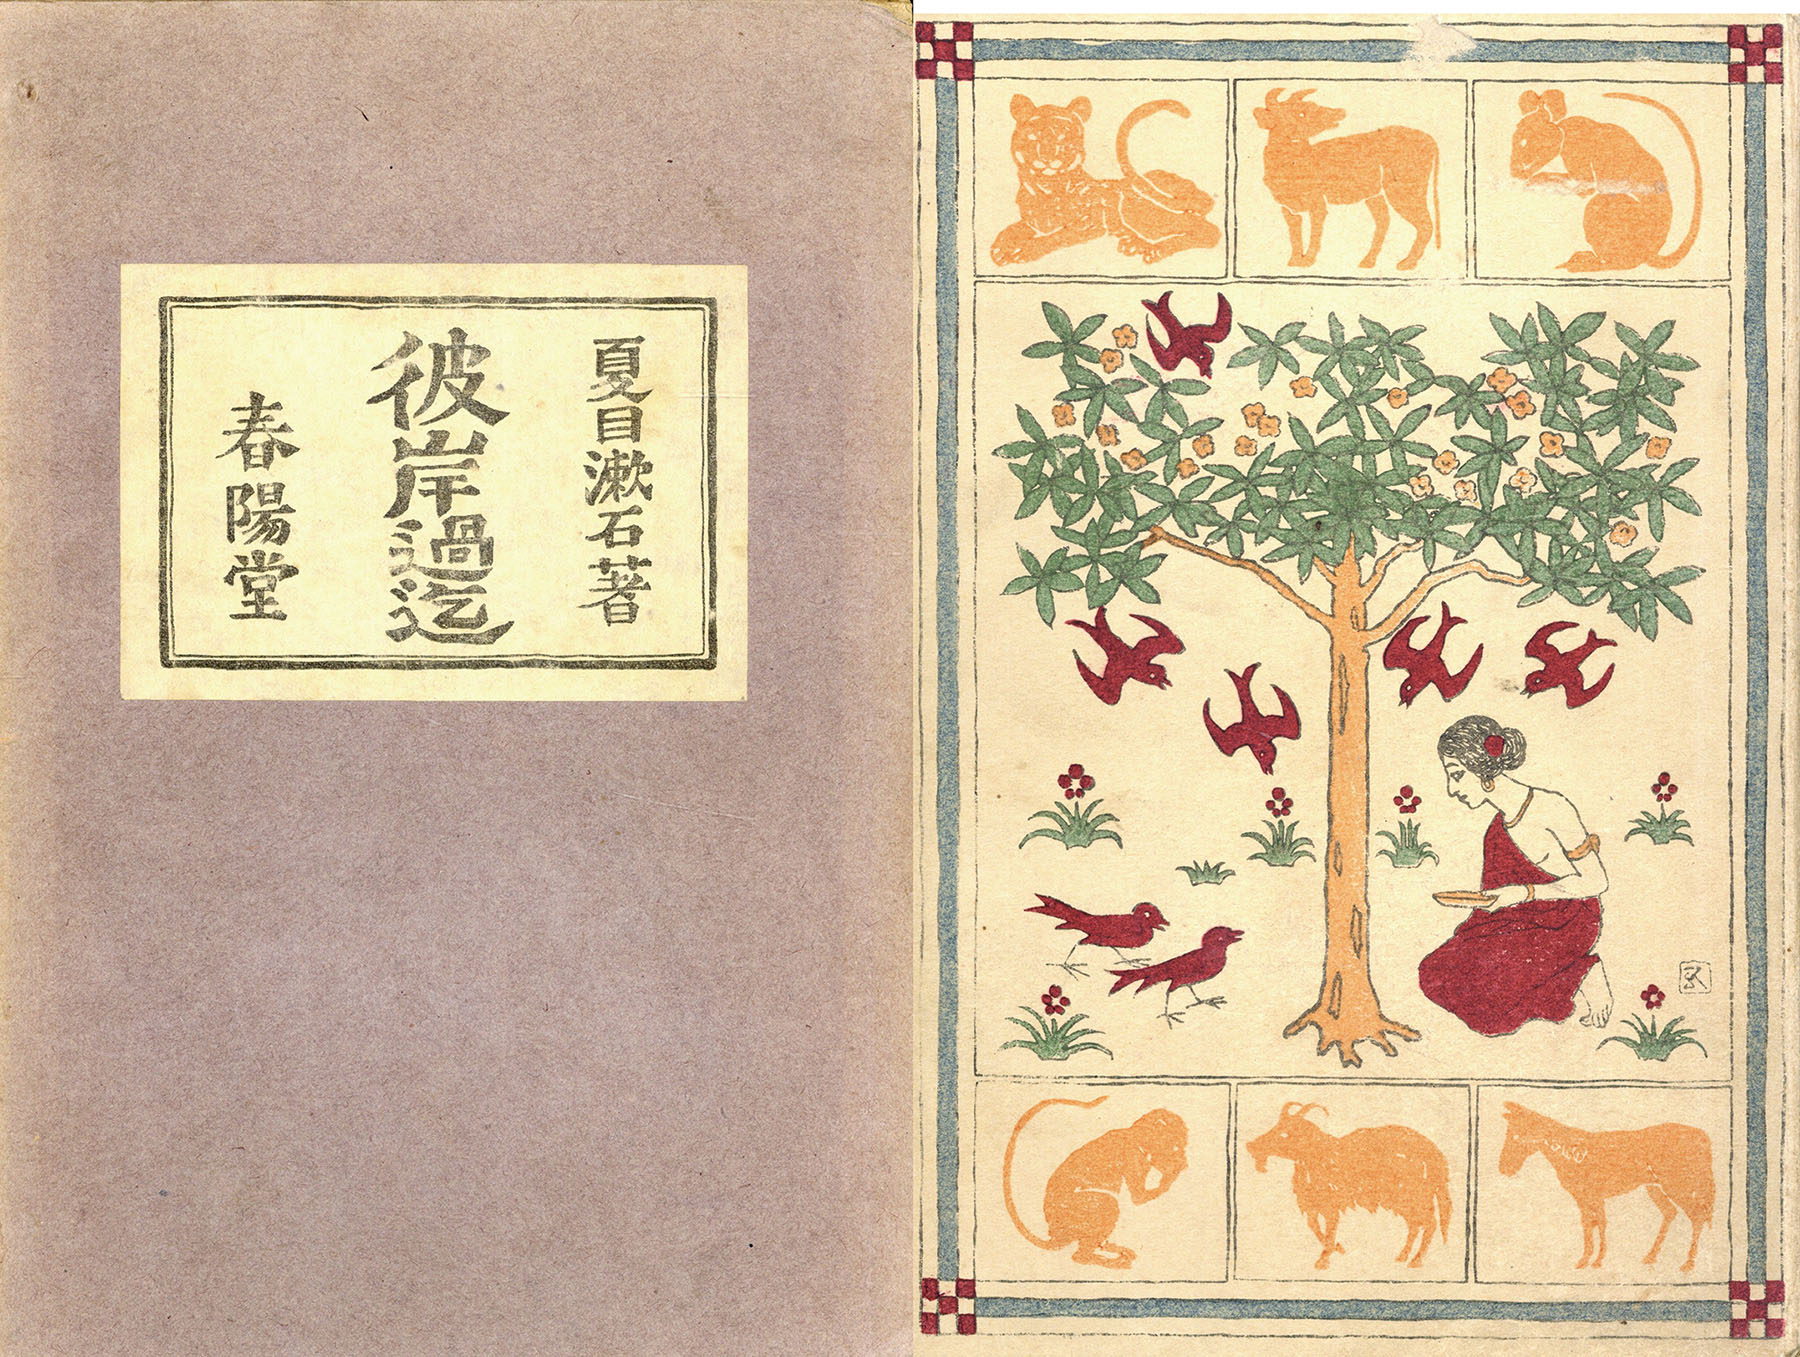 夏目漱石著
彼岸過迄
春陽堂